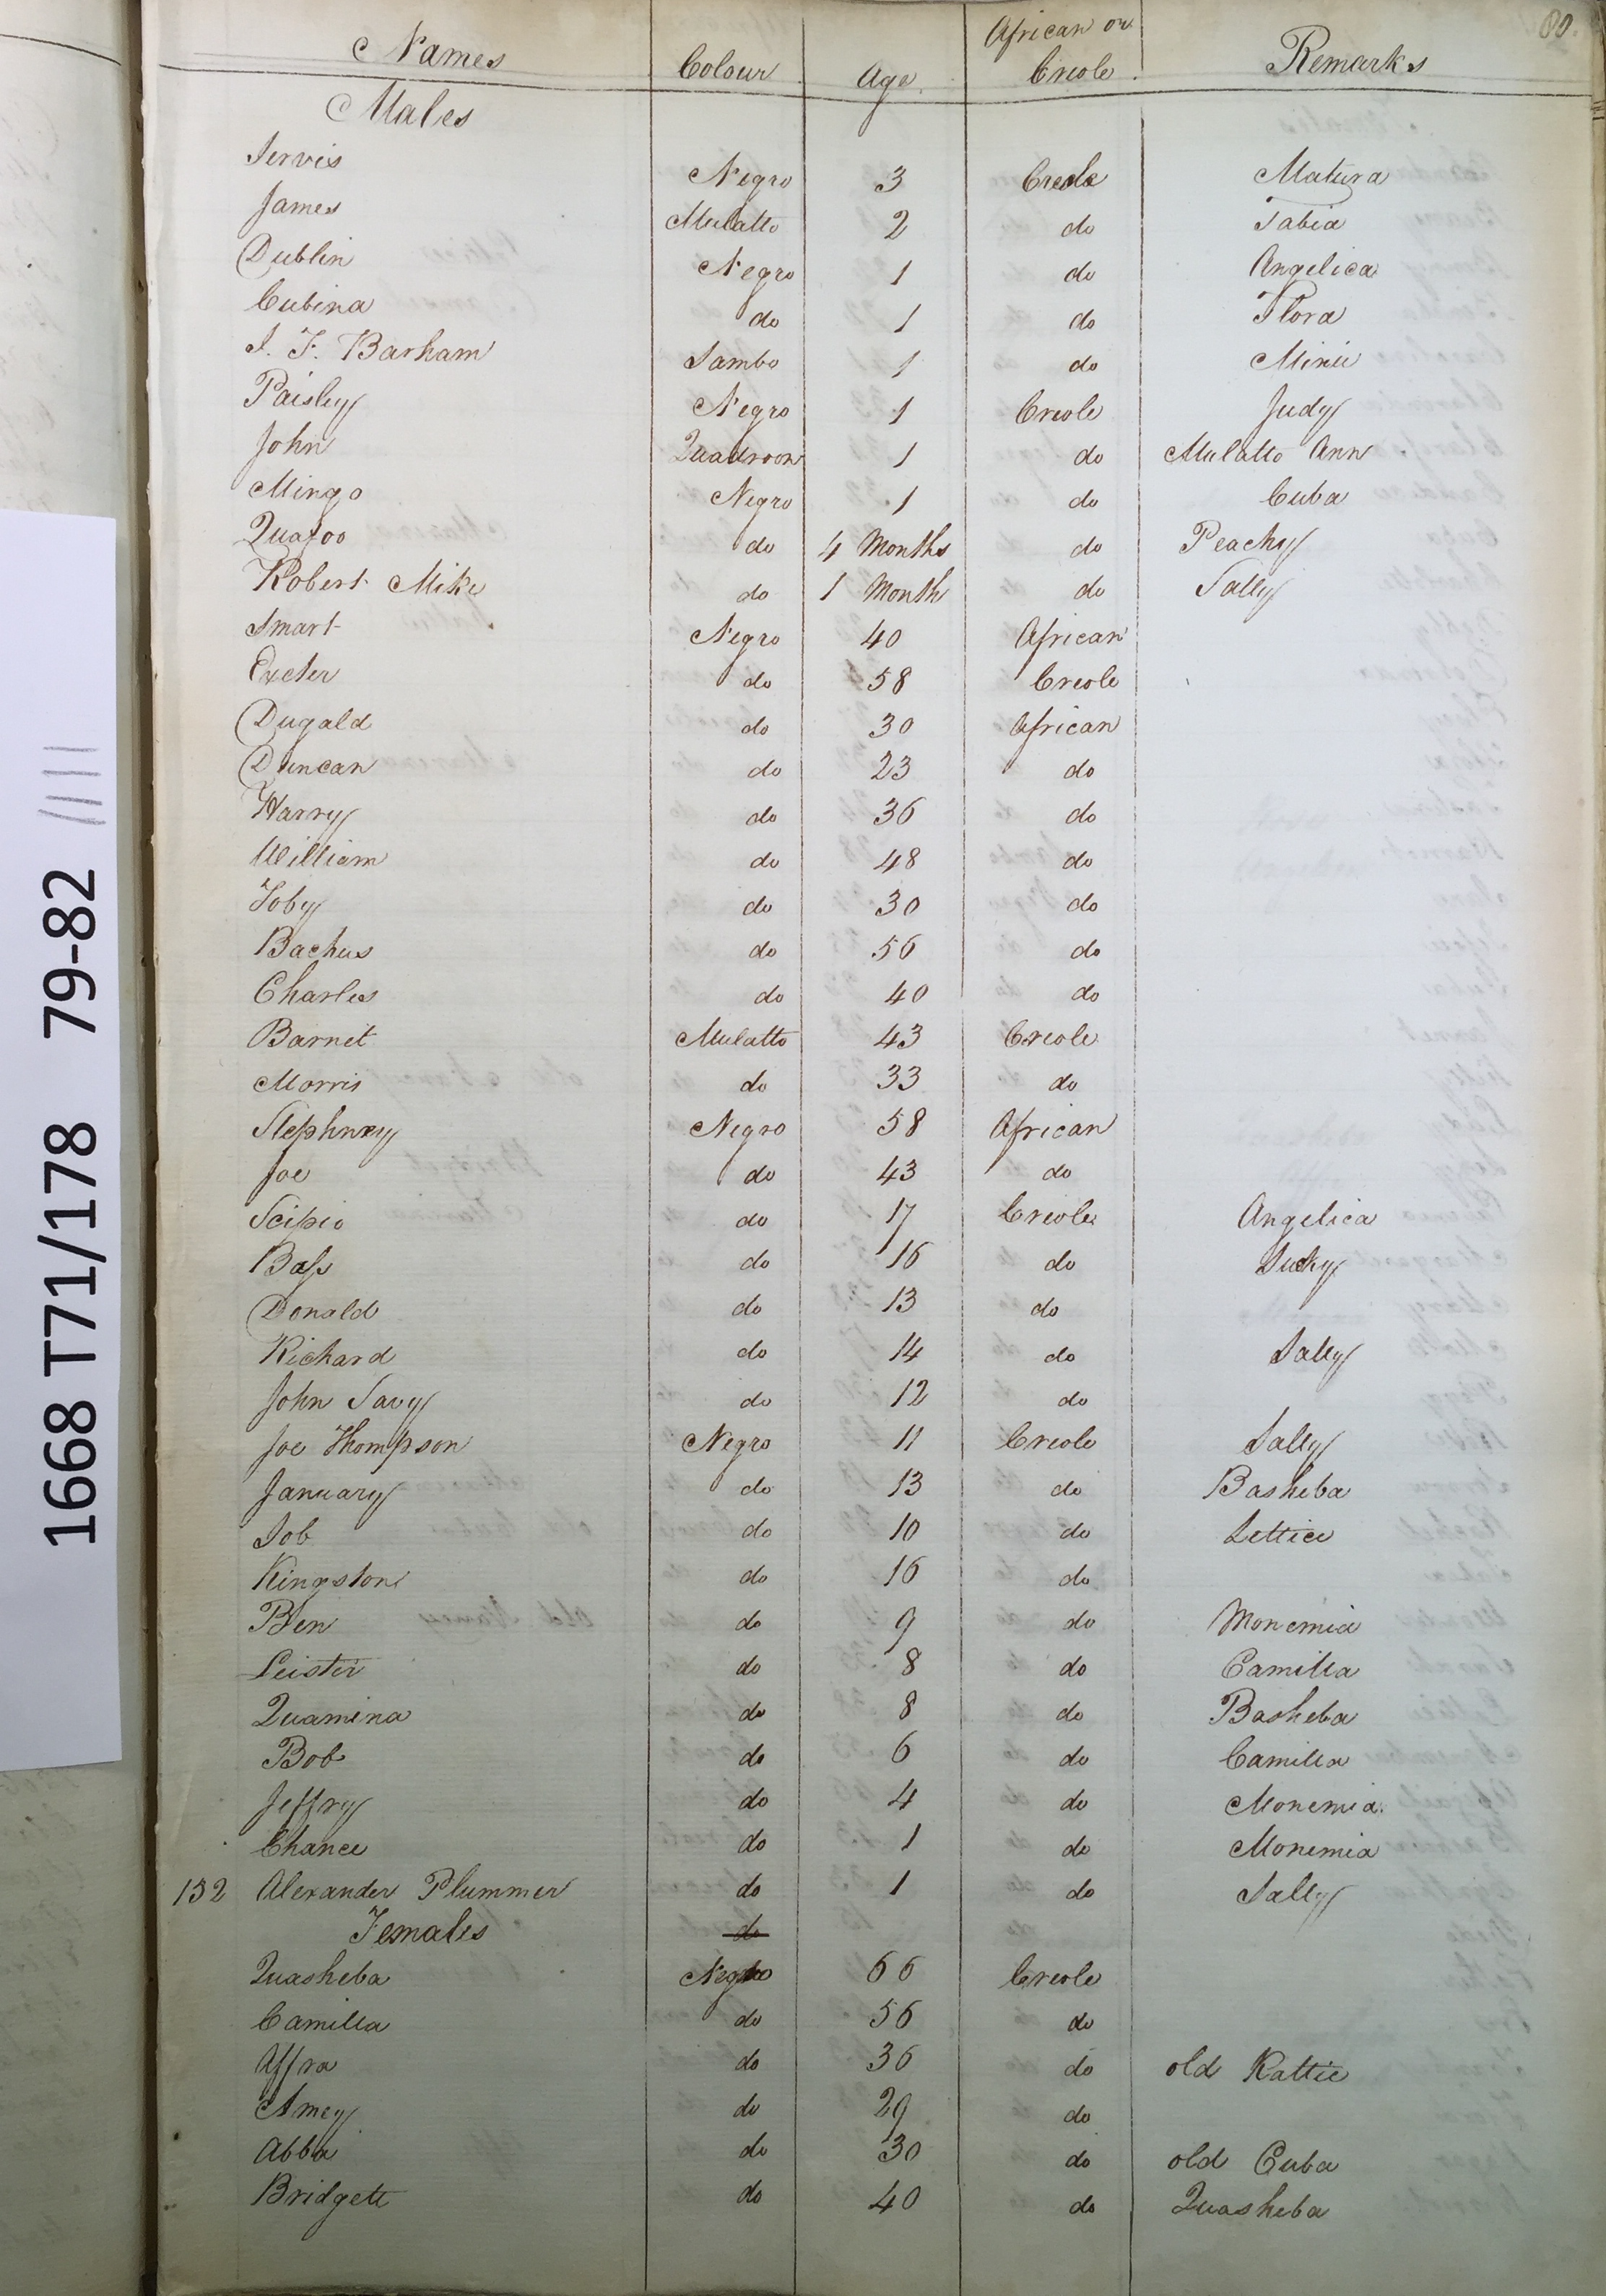 80.
Names Colour Age African or Creole Remarks
Males
Jervis Negro 3 Creole Matura
James Mulatto 2 do Tabia
Dublin Negro 1 do Angelica
Cubina do 1 do Flora
J. F. Barham Sambo 1 do Mirii
Paisley Negro 1 Creole Judy
John Quadroon 1 do Mulatto Ann
Mingo Negro 1 do Cuba
Quafoo do 4 Months do Peachy
Robert Mike do 1 Month do Sally
Smart Negro 40 African
Exeter do 58 Creole
Dugald do 30 African
Duncan do 23 do
Harry do 36 do
William do 48 do
Toby do 30 do
Bachus do 56 do
Charles do 40 do
Barnet Mulatto 43 Creole
Morris do 33 do
Stephney Negro 58 African
Joe do 43 do
Scipio do 17 Creole Angelica
Bass do 16 do Sucky
Donald do 13 do
Richard do 14 do Sally
John Savy do 12 do
Joe Thompson Negro 11 Creole Sally
January do 13 do Basheba
Job do 10 do Lettice
Kingston do 16 do
Ben do 9 do Monemia
Leister do 8 do Camilla
Quamina do 8 do Basheba
Bob do 6 do Camilla
Jeffry do 4 do Monemia
Chance do 1 do Monemia
132 Alexander Plummer do 1 do Sally
Females do
Quasheba Negro 66 Creole
Camilla do 56 do
Affra do 36 do old Kattie
Amey do 29 do
Abba do 30 do old Cuba
Bridgett do 40 do Quasheba
1668 T71/178 79-82